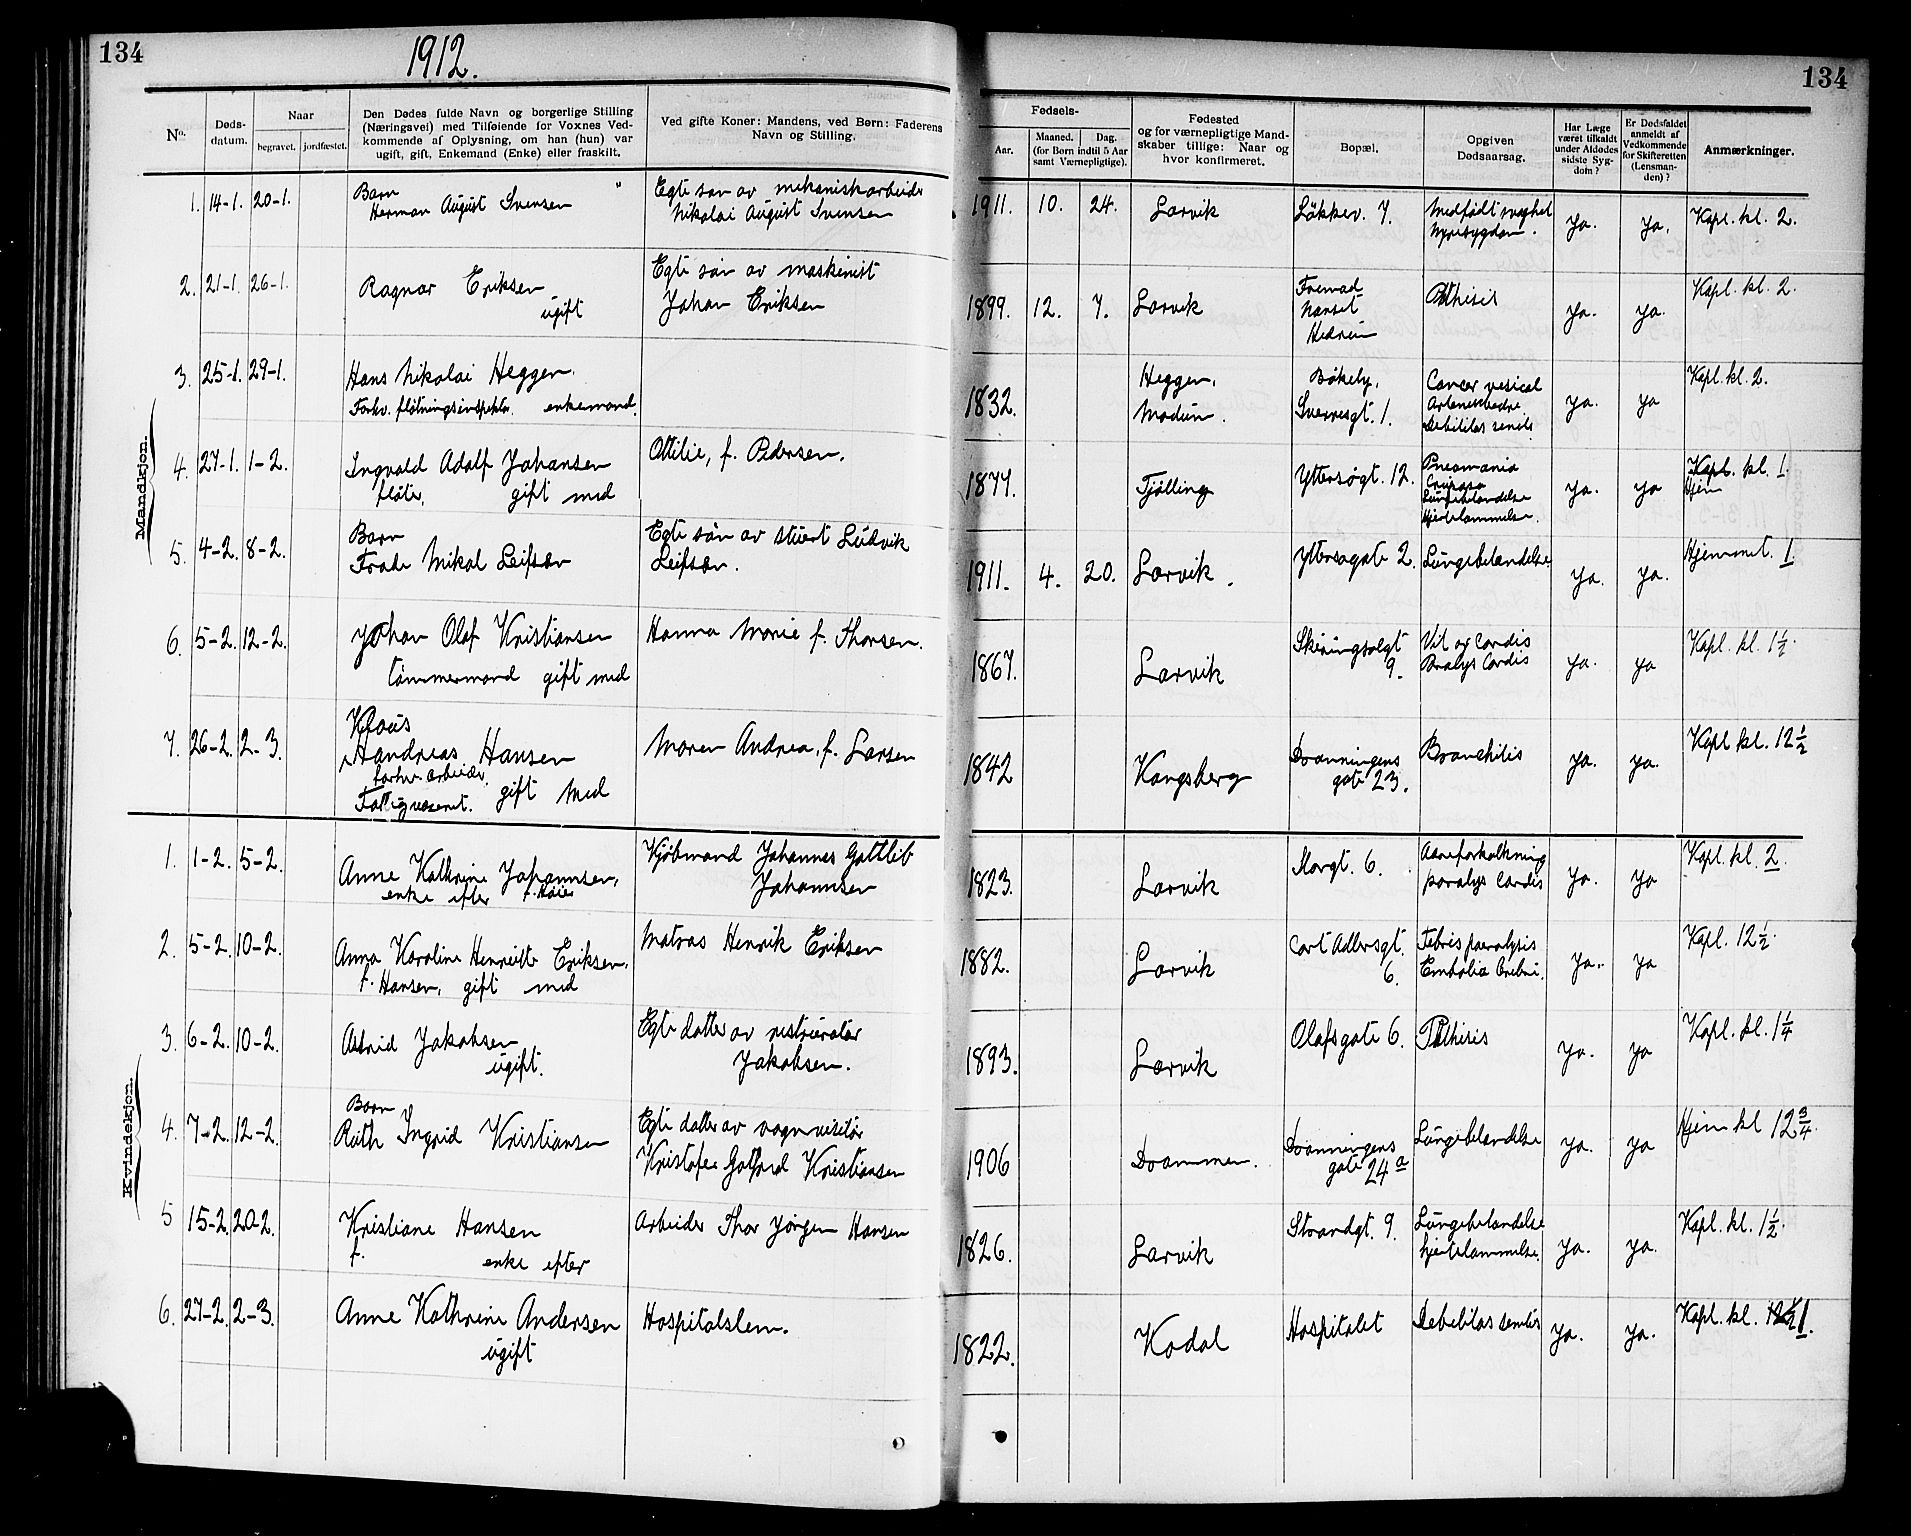 134
1912.
134
No.
Døds-
datum.
Naar
begravet.
jordfæstet.
Den Dødes fulde Navn og borgerlige Stilling
(Næringsvei) med Tilføiende for Voxnes Ved-
kommende af Oplysning, om han (hun) var
ugift, gift, Enkemand (Enke) eller fraskilt.
Ved gifte Koner: Mandens, ved Børn: Faderens
Navn og Stilling.
Fødsels-
Aar.
Maaned.
Dag.
(for Børn indtil 5 Aar
samt Værnepligtige).
Fødested
og for værnepligtige Mand-
skaber tillige: Naar og
hvor konfirmeret.
Bopæl.
Opgiven
Dødsaarsag.
Har Læge
været tilkaldt
under Afdødes
sidste Syg-
dom?
Er Dødsfaldet
anmeldt af
Vedkommende
for Skifteretten
(Lensman-
den)?
Anmærkninger.
Mandkjøn.
1. 14-1. 20-1.
Barn
Herman August Svensen
Egte søn av mekaniskarbeider
Nikolai August Svensen
1911. 10. 24. Larvik
Løkkev. 7.
Medfødt svaghet
Nyresygdom.
Ja. Ja. Kapl. kl. 2.
2. 21-1. 26-1.
Ragnar Eriksen
ugift
Egte søn av maskinist
Johan Eriksen
1899. 12. 7. Larvik
Fremad
Nanset
Hedrum
Phthisis
Ja. Ja. Kapl. kl. 2.
3. 25-1. 29-1.
Hans Nikolai Heggen.
Forhv. fløtningsinspektør. enkemand.
1832.
Heggen,
Modum.
Bøkely,
Sverresgt. 1.
Cancer vesical
Debilitas senilis
Ja. Ja Kapl. kl. 2.
4. 27-1. 1-2.
Ingvald Adolf Johansen
fløter, gift med
Otilie, f. Pedersen.
1877. Tjølling
Yttersøgt. 12.
Pneomonia
Cruposa
Lungebetændelse
Hjertelammelse.
Ja. Ja
Kapl. kl. 1.
Hjem
5. 4-2. 8-2.
Barn
Frode Mikal Leifsen
Egte søn av stuert Ludvik
Leifsen.
1911. 4. 20. Larvik.
Yttersøgate 2.
Lungebetændelse.
Ja. Ja. Hjemmet. 1.
6. 5-2. 12-2.
Johan Olaf Kristiansen
tømmermand gift med
Hanna Marie f. Thorsen.
1867. Larvik
Skiringssalgt
9.
Vit og Cordis
Paralys Cordis
Ja. Ja Kapl. kl. 1½.
7. 26-2. 2-3.
Klaus
Handreas Hansen
forhv. arbeider
Fattigvæsenet. gift med
Maren Andrea, f. Larsen
1842 Kongsberg
Dronningens
gate 23.
Bronchitis
Ja. Ja. Kapl kl. 12½
Kvindekjøn.
1. 1-2. 5-2.
Anne Kathrine Johannsen,
enke efter f. Høier
Kjøbmand Johannes Gottlieb
Johannsen
1823. Larvik
Storgt. 6.
Aareforkalkning
paralys Cordis
Ja. Ja Kapl. kl. 2.
2. 5-2. 10-2.
Anna Karoline Henriette Eriksen.
f. Hansen, gift med
Matros Henrik Eriksen
1882. Larvik
Cort Adlersgt.
6.
Febris paralysis
Embolia Crebri.
Ja. Ja Kapl. 12½.
3. 6-2. 10-2.
Astrid Jakobsen
ugift.
Egte datter av restauratør
Jakobsen.
1893. Larvik
Olafsgate 6.
Phthisis
Ja. Ja Kapl. kl. 1¼
4. 7-2. 12-2.
Barn
Ruth Ingrid Kristiansen
Egte datter av vognvisitør
Kristofer Gotfred Kristiansen
1906 Drammen.
Dronningens
gate 24a
Lungebetændelse
Ja. Ja Hjem kl 12¾.
5 15-2. 20-2.
Kristiane Hansen
f. enke efter
Arbeider Thor Jørgen Hansen
1826. Larvik
Strandgt. 9.
Lungebetændelse
hjertelammelse.
Ja. Ja. Kapl. kl. 1½.
6. 27-2. 2-3.
Anne Kathrine Andersen
ugift
Hospitalslem.
1822. Kodal
Hospitalet
Debilitas senilis
Ja. Ja. Kapl. kl. 1.